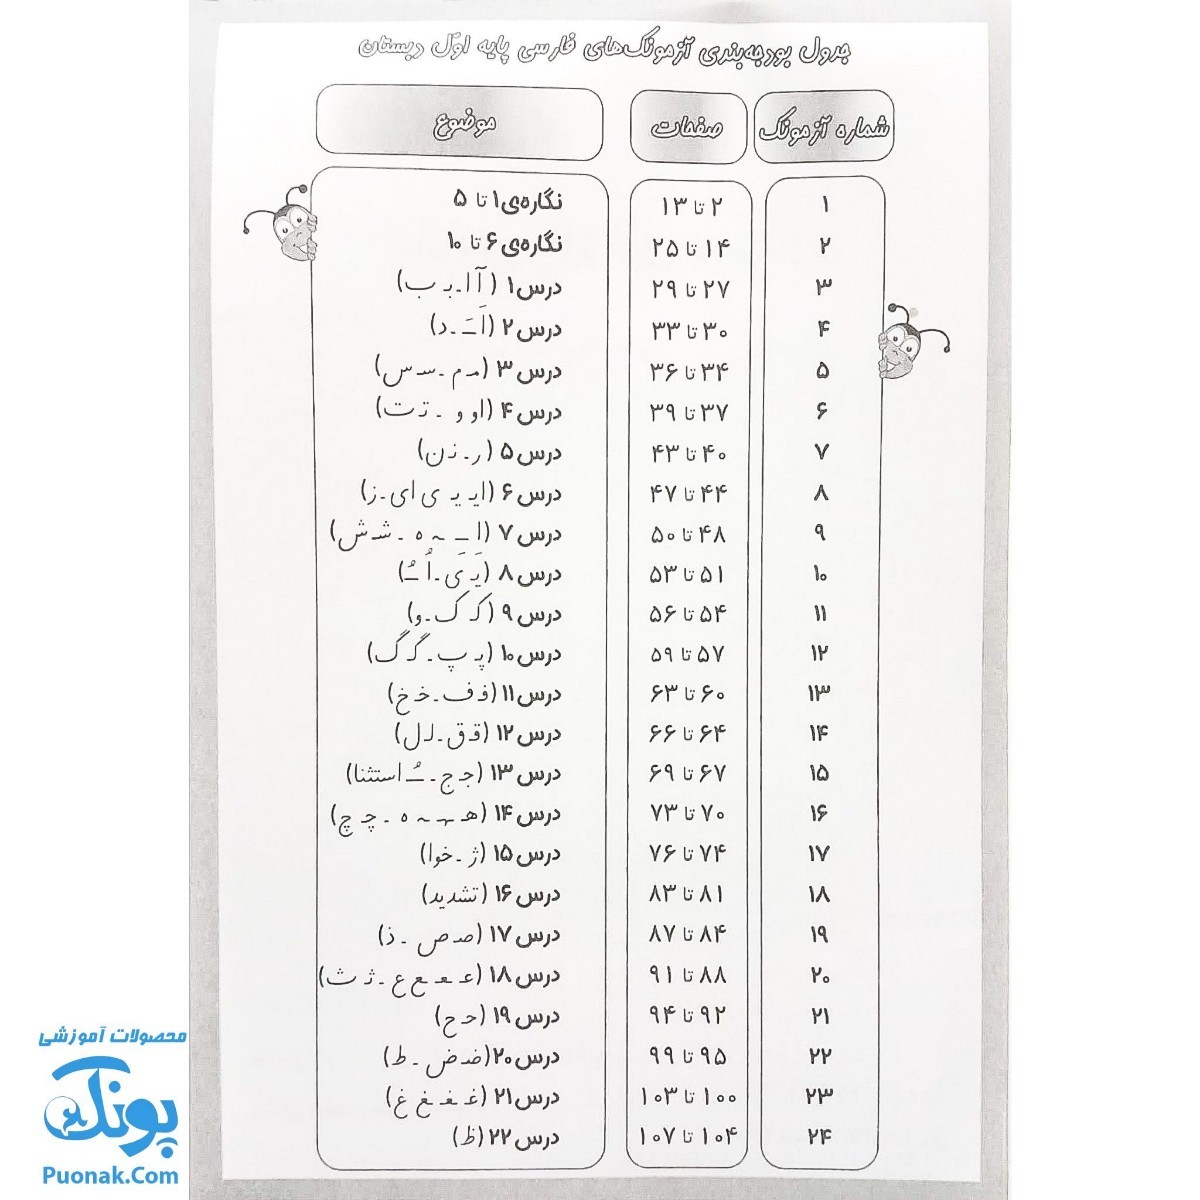 جدول بودجه‌بندی آزمونک‌های فارسی پایه اوّل دبستان
شماره آزمونک صفحات موضوع
۱ ۲ تا ۱۳ نگاره‌ی ۱ تا ۵
۲ ۱۴ تا ۲۵ نگاره‌ی ۶ تا ۱۰
۳ ۲۷ تا ۲۹ درس ۱ (آ ا ـ بـ ب)
۴ ۳۰ تا ۳۳ درس ۲ (اَ ـَ ـ د)
۵ ۳۴ تا ۳۶ درس ۳ (مـ م ـ سـ س)
۶ ۳۷ تا ۳۹ درس ۴ (او و ـ تـ ت)
۷ ۴۰ تا ۴۳ درس ۵ (ر ـ نـ ن)
۸ ۴۴ تا ۴۷ درس ۶ (ایـ یـ ی ای ـ ز)
۹ ۴۸ تا ۵۰ درس ۷ (اِ ـِ ـه ه ـ شـ ش)
۱۰ ۵۱ تا ۵۳ درس ۸ (یَـ یَ ـ اُ ـُ)
۱۱ ۵۴ تا ۵۶ درس ۹ (کـ ک ـ و)
۱۲ ۵۷ تا ۵۹ درس ۱۰ (پـ پ ـ گـ گ)
۱۳ ۶۰ تا ۶۳ درس ۱۱ (فـ ف ـ خـ خ)
۱۴ ۶۴ تا ۶۶ درس ۱۲ (قـ ق ـ لـ ل)
۱۵ ۶۷ تا ۶۹ درس ۱۳ (جـ ج ـ ـُ استثنا)
۱۶ ۷۰ تا ۷۳ درس ۱۴ (هـ ـهـ ـه ه ـ چـ چ)
۱۷ ۷۴ تا ۷۶ درس ۱۵ (ژ ـ خوا)
۱۸ ۸۱ تا ۸۳ درس ۱۶ (تشدید)
۱۹ ۸۴ تا ۸۷ درس ۱۷ (صـ ص ـ ذ)
۲۰ ۸۸ تا ۹۱ درس ۱۸ (عـ ـعـ ـع ع ـ ثـ ث)
۲۱ ۹۲ تا ۹۴ درس ۱۹ (حـ ح)
۲۲ ۹۵ تا ۹۹ درس ۲۰ (ضـ ض ـ ط)
۲۳ ۱۰۰ تا ۱۰۳ درس ۲۱ (غـ ـغـ ـغ غ)
۲۴ ۱۰۴ تا ۱۰۷ درس ۲۲ (ظ)
محصولات آموزشی
پونک
Puonak.Com